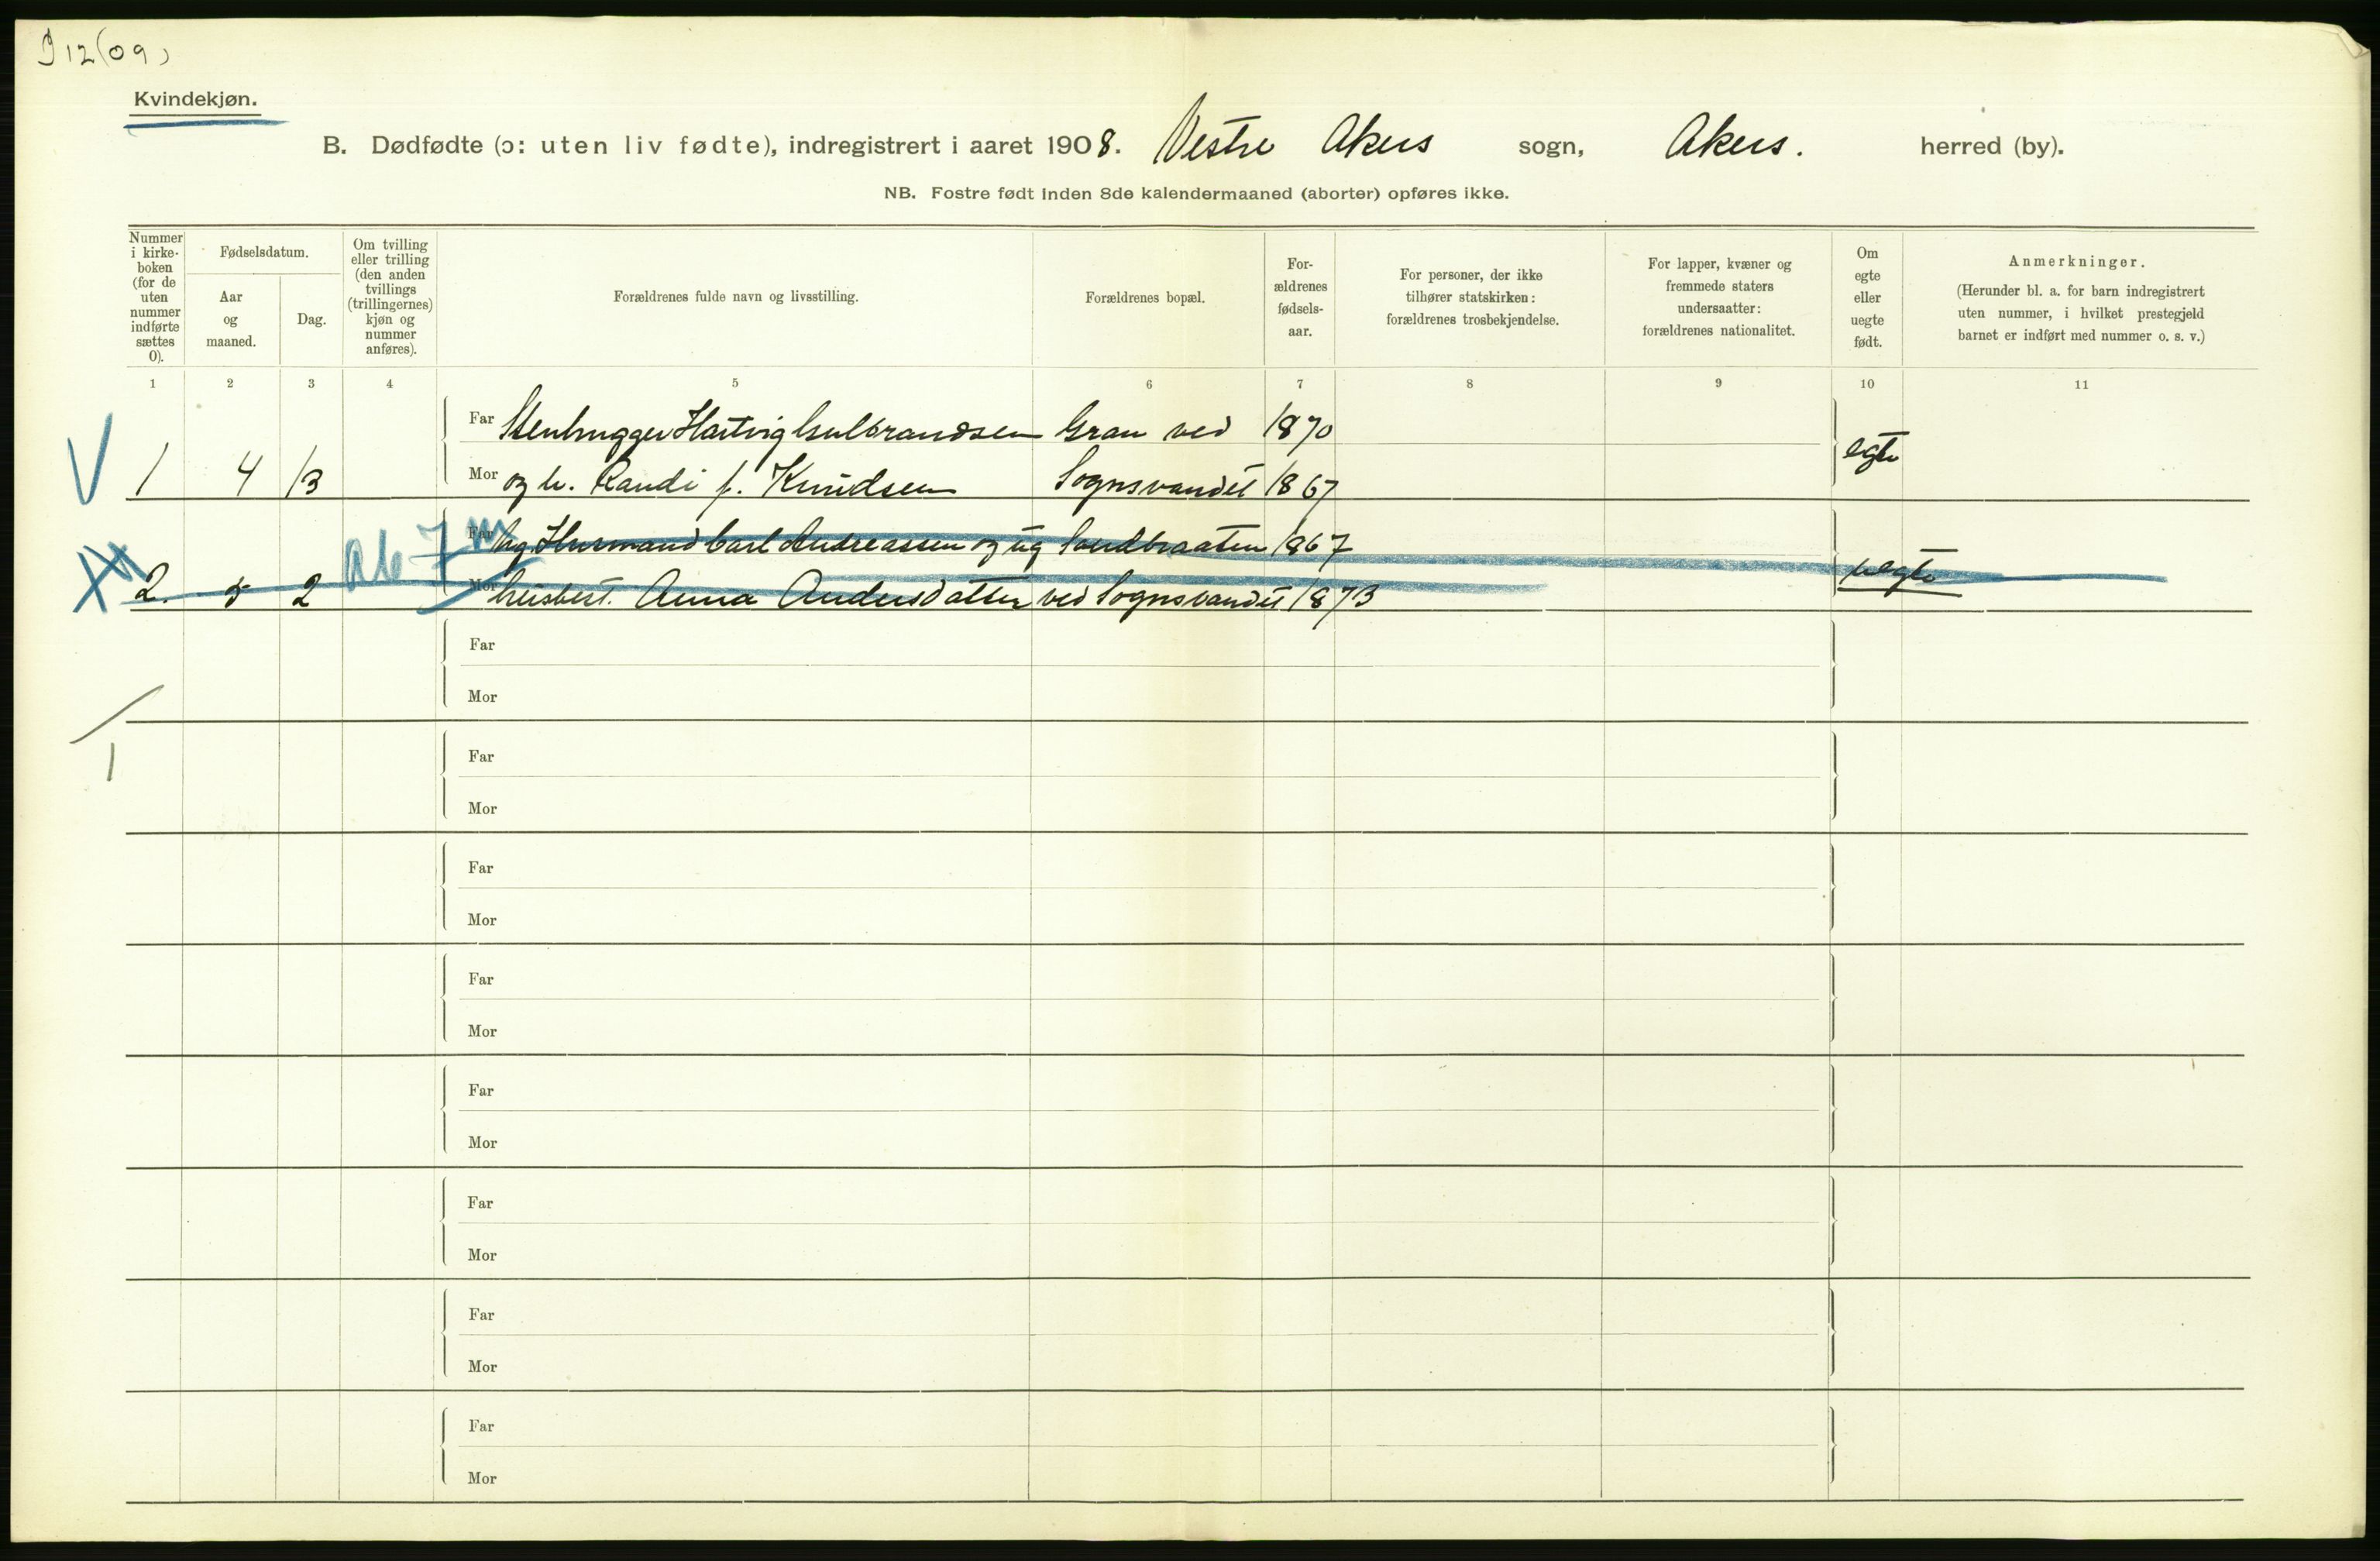 J 12(09)
Kvindekjøn.
B. Dødfødte (ɔ: uten liv fødte), indregistrert i aaret 1908. Vestre Akers sogn, Akers. herred (by).
NB. Fostre født inden 8de kalendermaaned (aborter) opføres ikke.
Nummer i kirke-boken (for de uten nummer indførte sættes 0).
Fødselsdatum.
Aar og maaned.
Dag.
Om tvilling eller trilling (den anden tvillings (trillingernes) kjøn og nummer anføres).
Forældrenes fulde navn og livsstilling.
Forældrenes bopæl.
For-ældrenes fødsels-aar.
For personer, der ikke tilhører statskirken: forældrenes trosbekjendelse.
For lapper, kvæner og fremmede staters undersaatter: forældrenes nationalitet.
Om egte eller uegte født.
Anmerkninger.
(Herunder bl. a. for barn indregistrert uten nummer, i hvilket prestegjeld barnet er indført med nummer o. s. v.)
1 2 3 4 5 6 7 8 9 10 11
Far Stenhugger Hartvig Gulbrandsen Gran ved 1870
V 1 4 13 Mor og h. Randi f. Knudsen Sognsvandet 1867 egte
Ab 7 m
Far Ug Husmand Carl Andreassen og ug Sandbraaten 1867
2. 5 2 Mor husbest. Anna Andersdatter ved Sognsvandet 1873 uegte
Far
Mor
1
Far
Mor
Far
Mor
Far
Mor
Far
Mor
Far
Mor
Far
Mor
Far
Mor